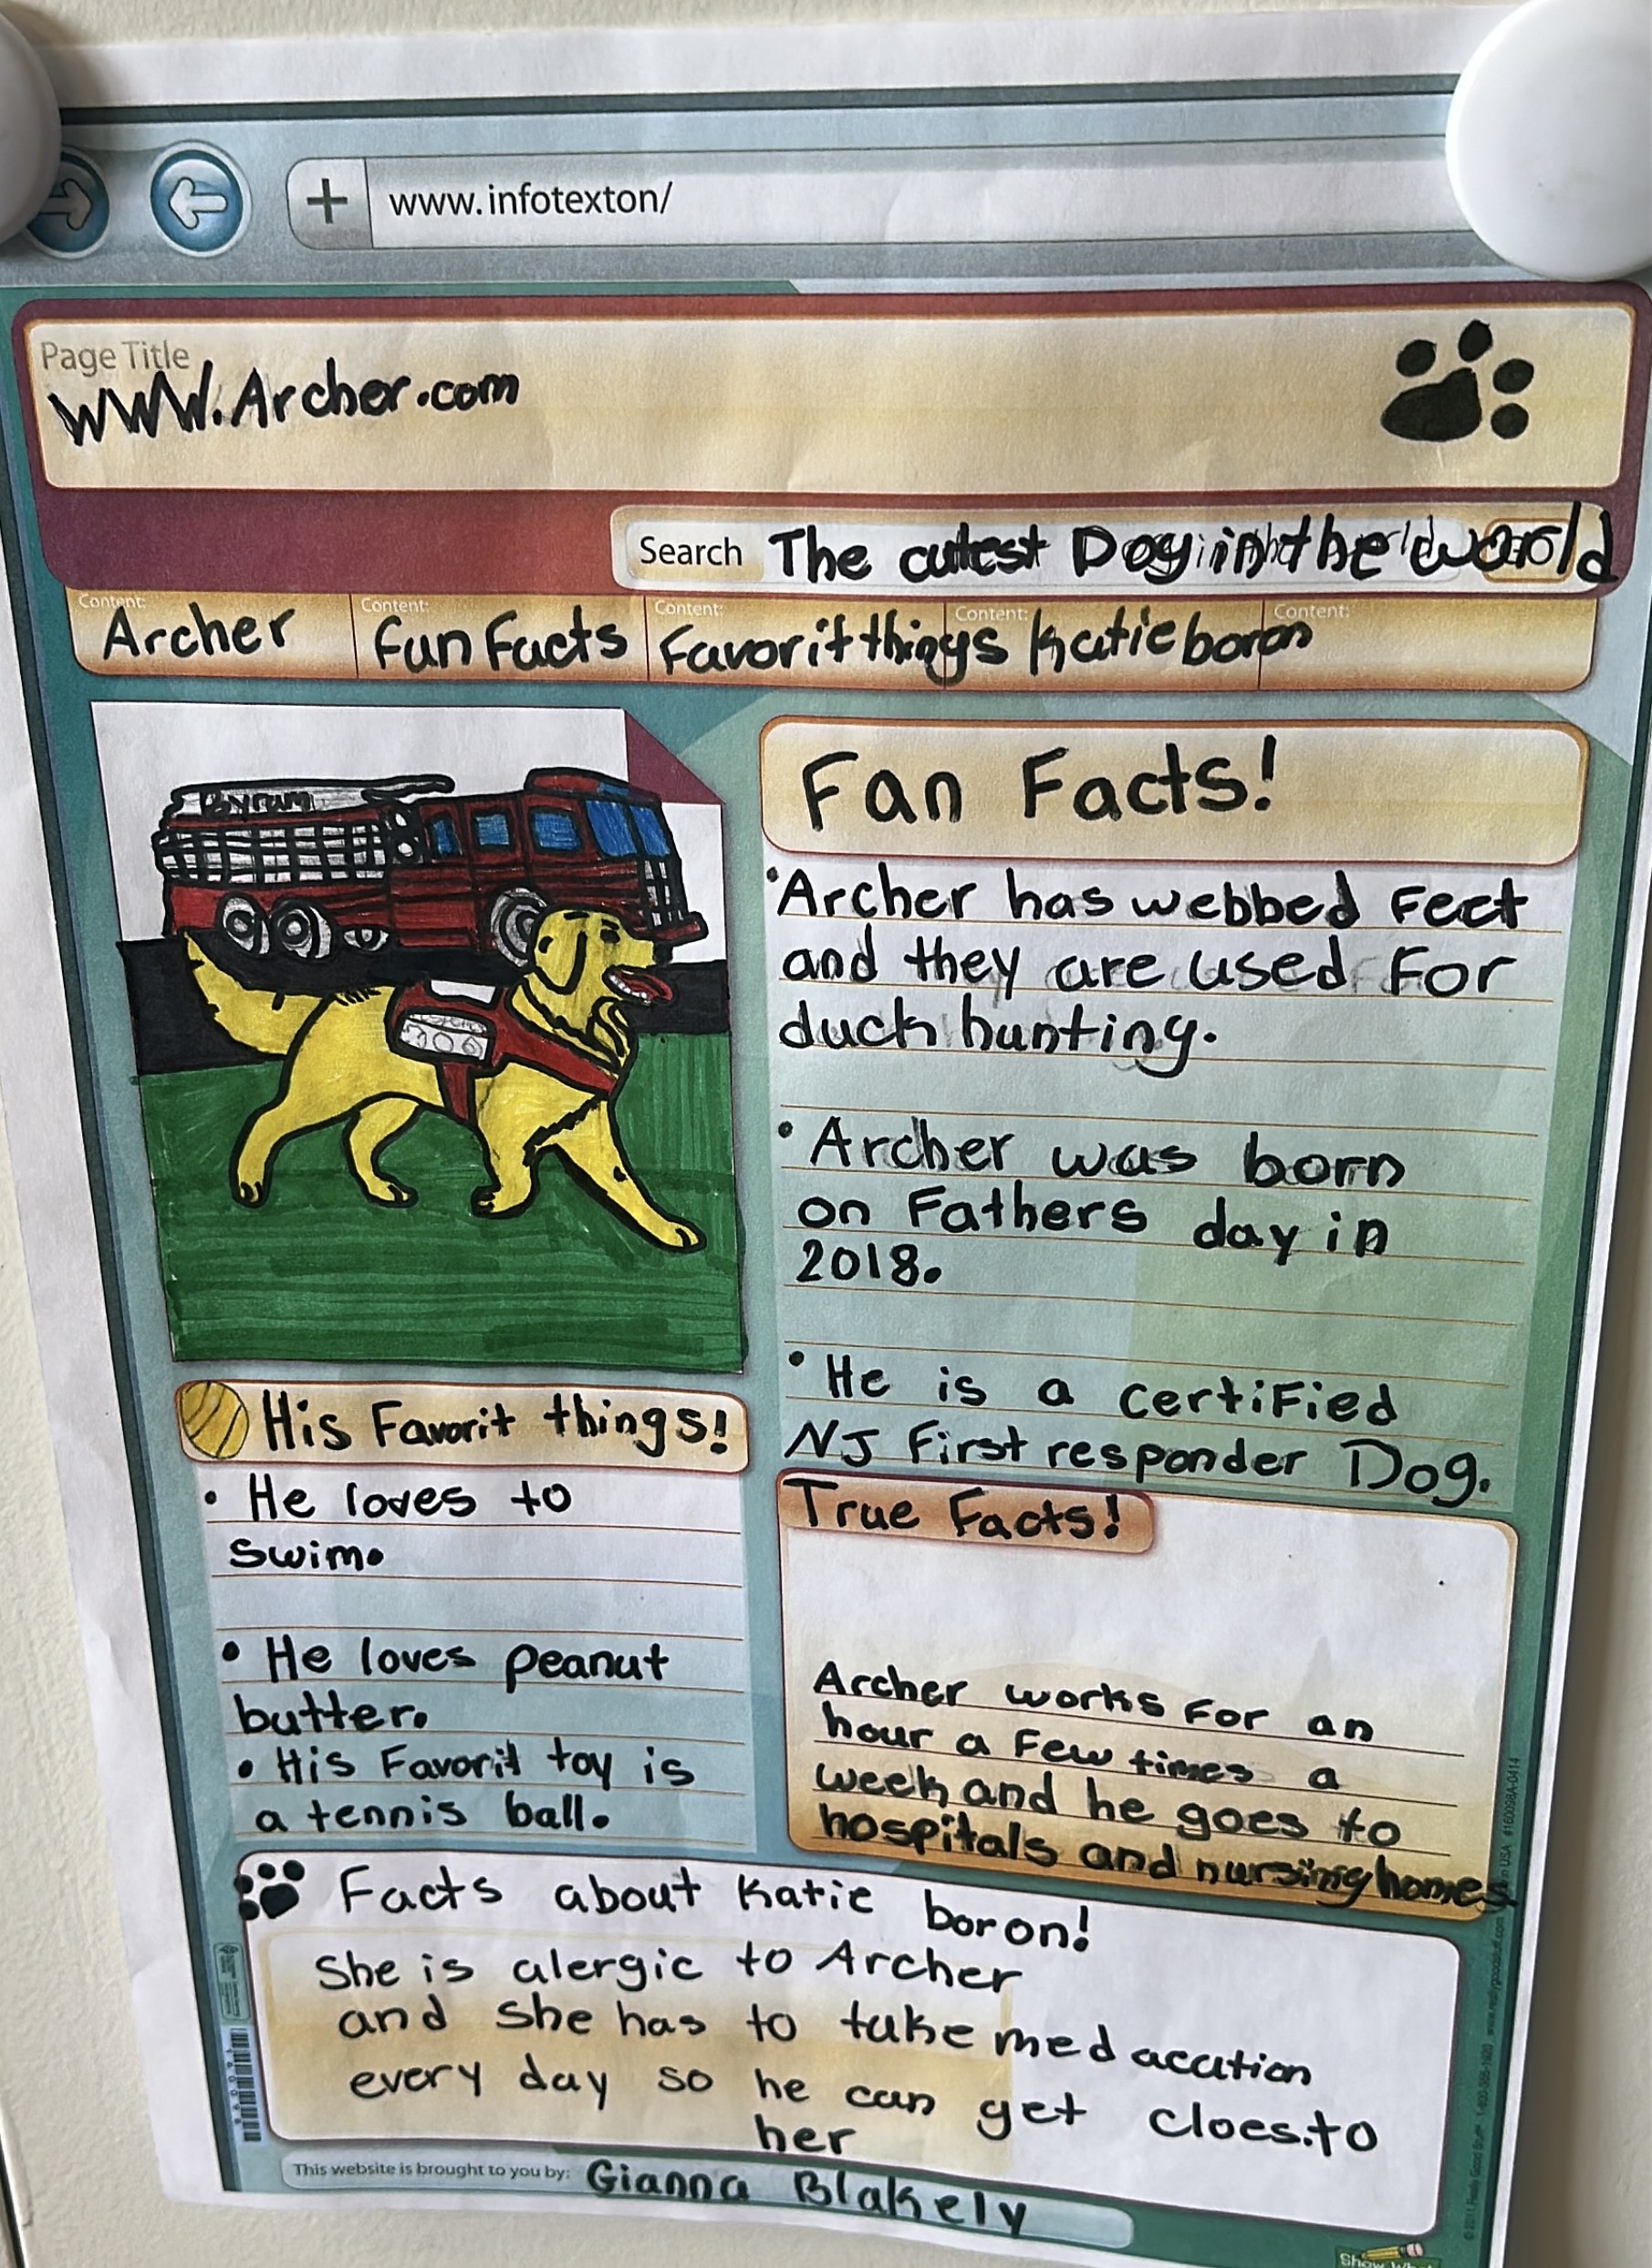 www.infotexton/
Page Title
WWW.Archer.com
Search The cutest Dog in the world
Content: Content: Content: Content: Content:
Archer Fun Facts Favorit things Katie boron
Byram
Fan Facts!
•Archer has webbed Feet
and they are used For
duck hunting.
•Archer was born
on Fathers day in
2018.
•He is a certified
NJ First responder Dog.
His Favorit things!
• He loves to
swim.
• He loves peanut
butter.
• His Favorit toy is
a tennis ball.
True Facts!
Archer works For an
hour a Few times a
week and he goes to
hospitals and nursing homes
Facts about Katie boron!
She is alergic to Archer
and she has to take medacation
every day so he can get cloes.to
her
This website is brought to you by: Gianna Blakely
in USA #160098A-0414